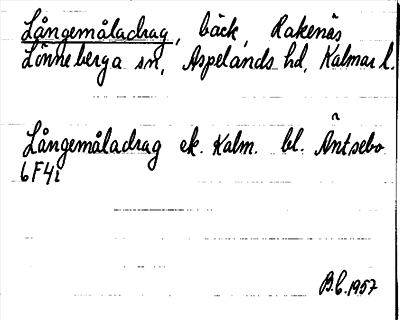 Långemåladrag, bäck, Rakenäs
Lönneberga sn, Aspelands hd, Kalmar l.
Långemåladrag ek. Kalm. bl. Äntsebo
6F4i
B.C. 1957